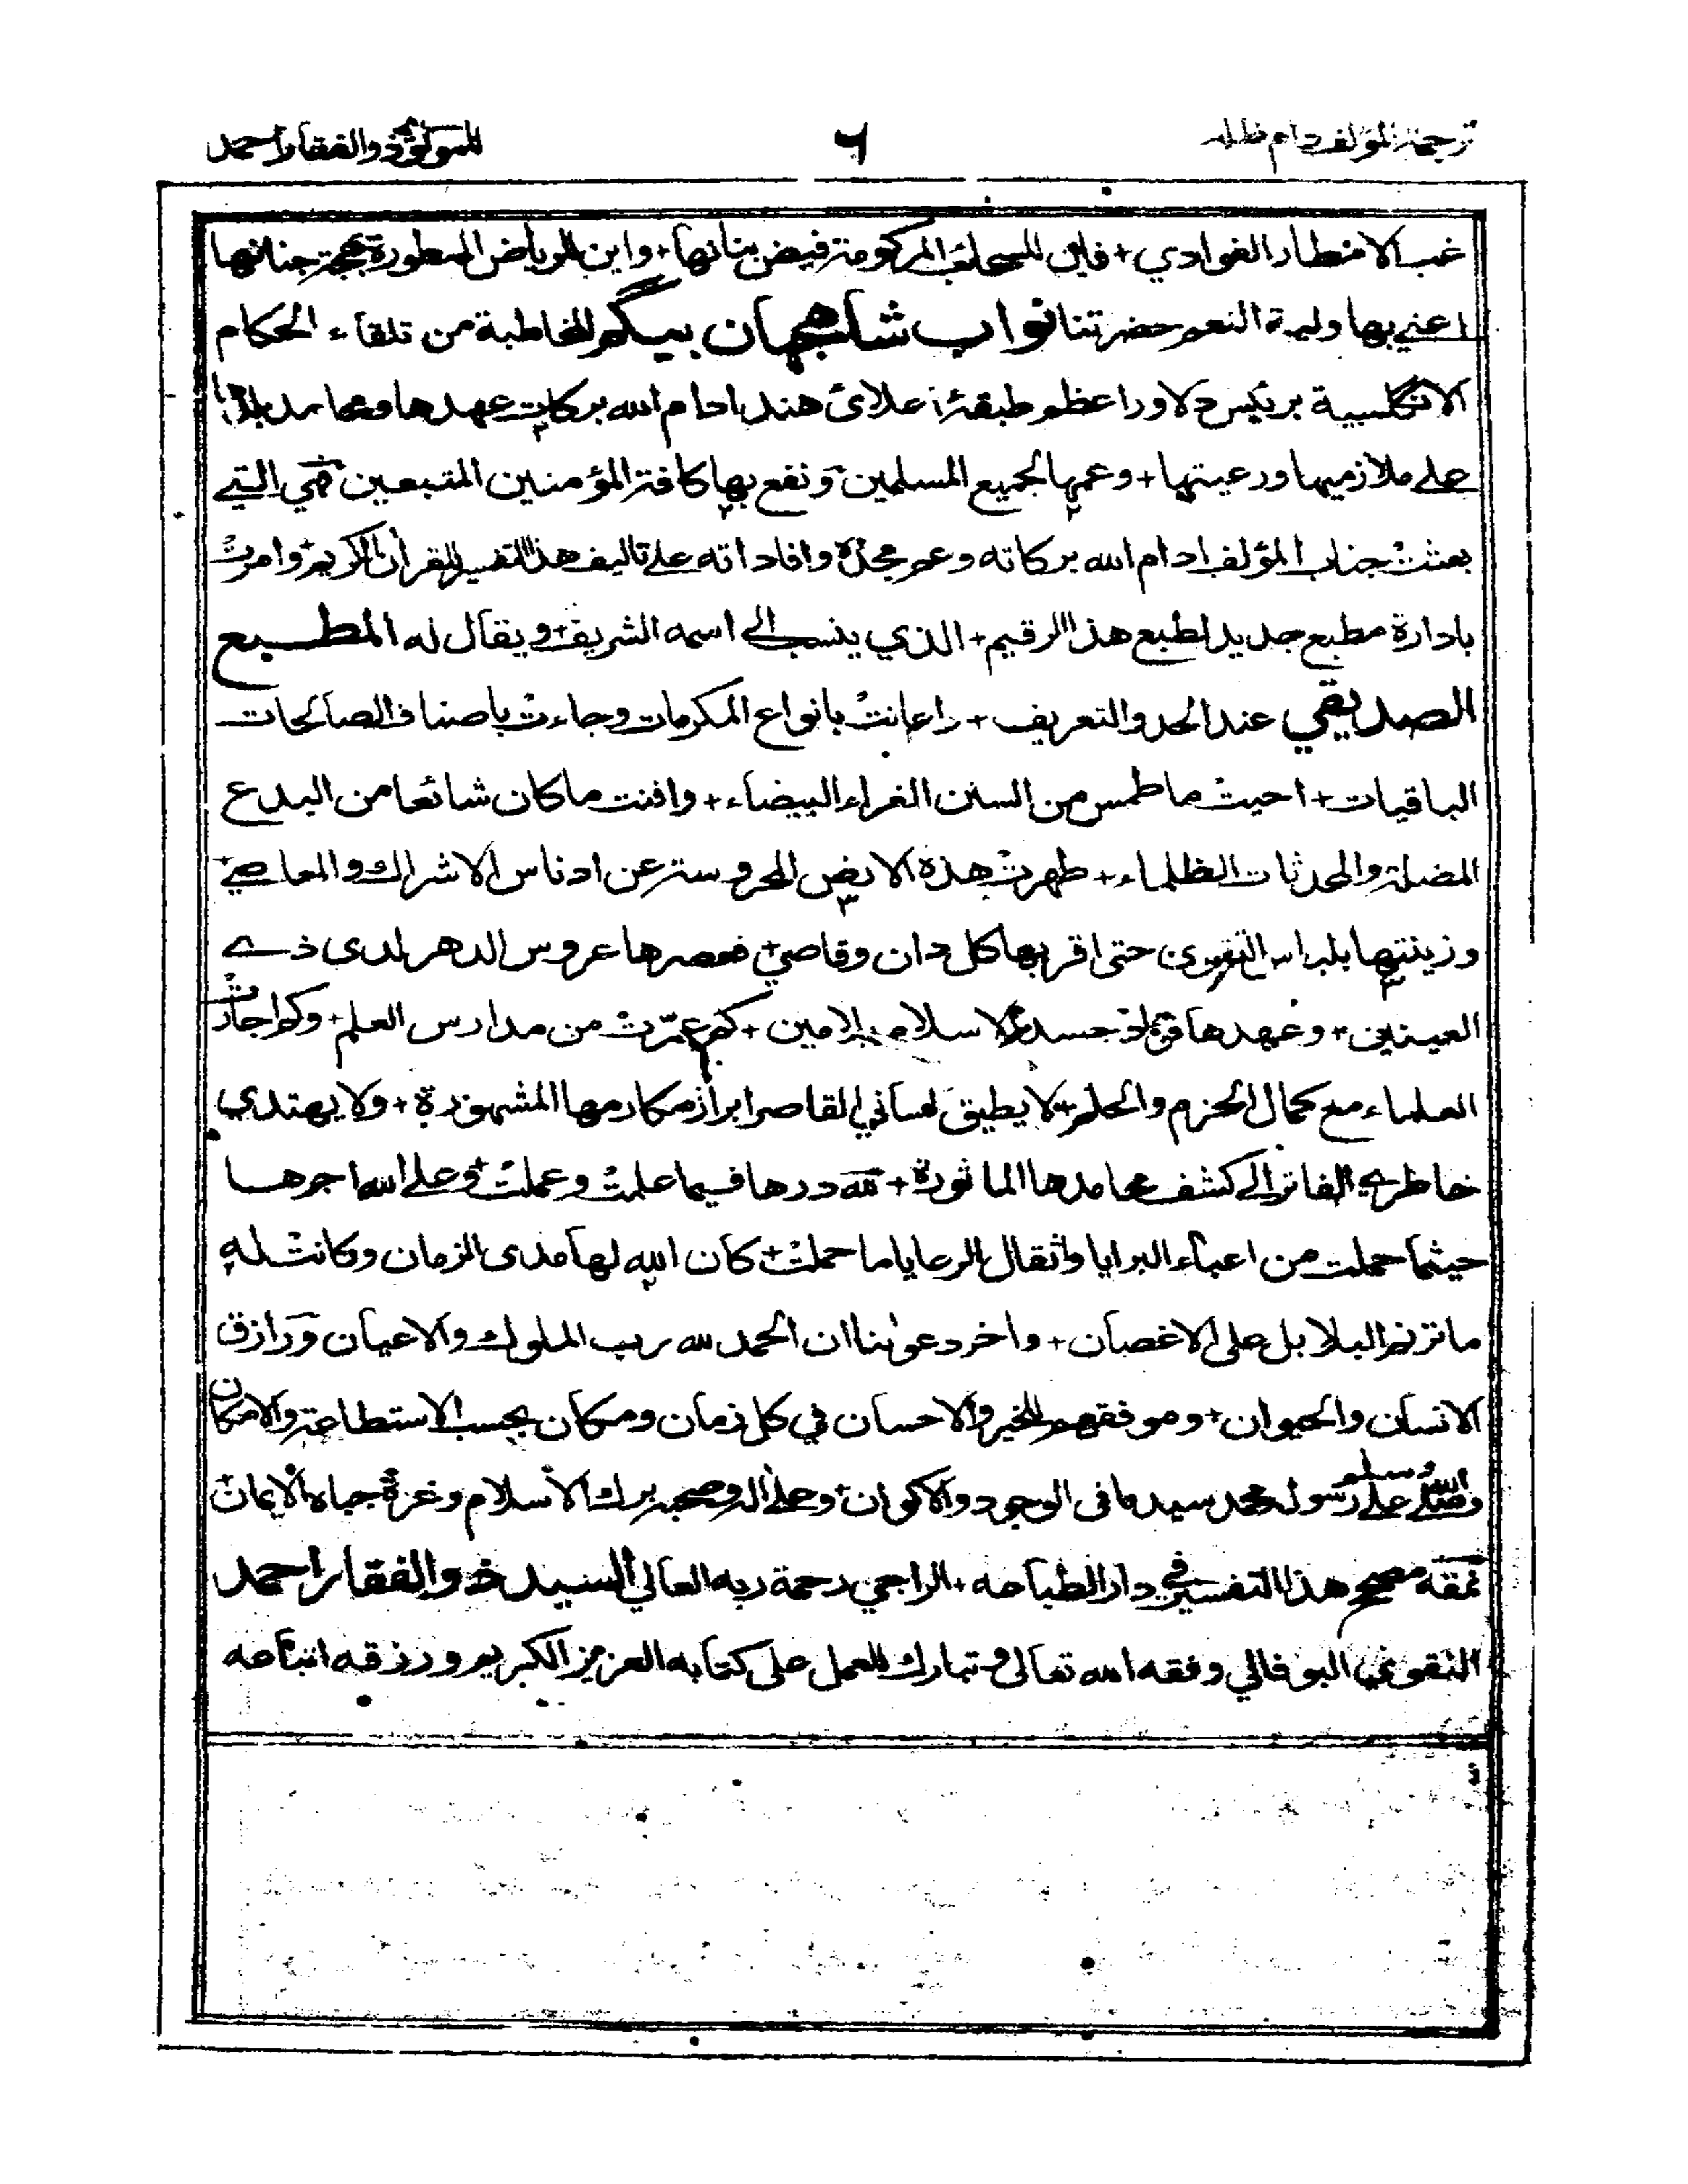 ترجمة المؤلف دام ظله
٦
للمولوي ذو الفقار احمد
غب الامطار الغوادي + فاين للسحائب المركومة فيض بنانها + واين للرياض الممطورة بهجة جنانها
اعني بها ولية النعم حضرتنا نواب شاهجهان بيگم المخاطبة من تلقاء الحكام
الانكليسية برئيس دلاور اعظم طبقة اعلائ هند ادام الله بركات عهدها ومحامد
على ملازميها ورعيتها + وعمها لجميع المسلمين ونفع بها كافة المؤمنين المتبعين هي التي
بعثت جناب المؤلف ادام الله بركاته وعم مجده وافاداته على تاليف هذا التفسير للقرأن الكريم + وامرت
بادارة مطبع جديد لطبع هذا الرقيم + الذي ينسب الى اسمه الشريف + ويقال له المطبع
الصديقي عند الحد والتعريف + واعانت بانواع المكرمات وجاءت باصناف الصالحات
الباقيات + احيت ما طمس من السنن الغراء البيضاء + وافنت ما كان شائعا من البدع
المضلة والمحدثات الظلماء + طهرت هذه الارض المحروسة عن ادناس الاشراك والمعاصي
وزينتها بلباس التقوى حتى اقر بها كل دان وقاصي + فمصرها عروس الدهر لدى ذي
العينين + وعهدها جسد الاسلام + كم عمّرت من مدارس العلم + وكم اجازت
العلماء مع كمال الحزم والحلم + لا يطيق لساني القاصر ابراز مكارمها المشهورة + ولا يهتدي
خاطري الفاتر الى كشف محامدها الماثورة + لله درها فيما علمت وعملت + وعلى الله اجرها
حيثما حملت من اعباء البرايا واثقال الرعايا ما حملت + كان الله لها مدى الزمان وكانت له
ما ترنم البلابل على الاغصان + واخر دعوٰنا ان الحمد لله رب الملوك والاعيان ورازق
الانسان والحيوان + وموفقهم للخير والاحسان في كل زمان ومكان بحسب الاستطاعة والامكان
وصلى الله وسلم على رسوله محمد سيد ما فى الوجود والاكوان + وعلى اله وصحبه برك الاسلام وغرة جباه الايمان
نمقه مصحح هذا التفسير في دار الطباعه + الراجي رحمة ربه العالي السيد ذو الفقار احمد
النقوي البوفالي وفقه الله تعالى وتبارك للعمل على كتابه العزيز الكريم ورزقه اتباعه